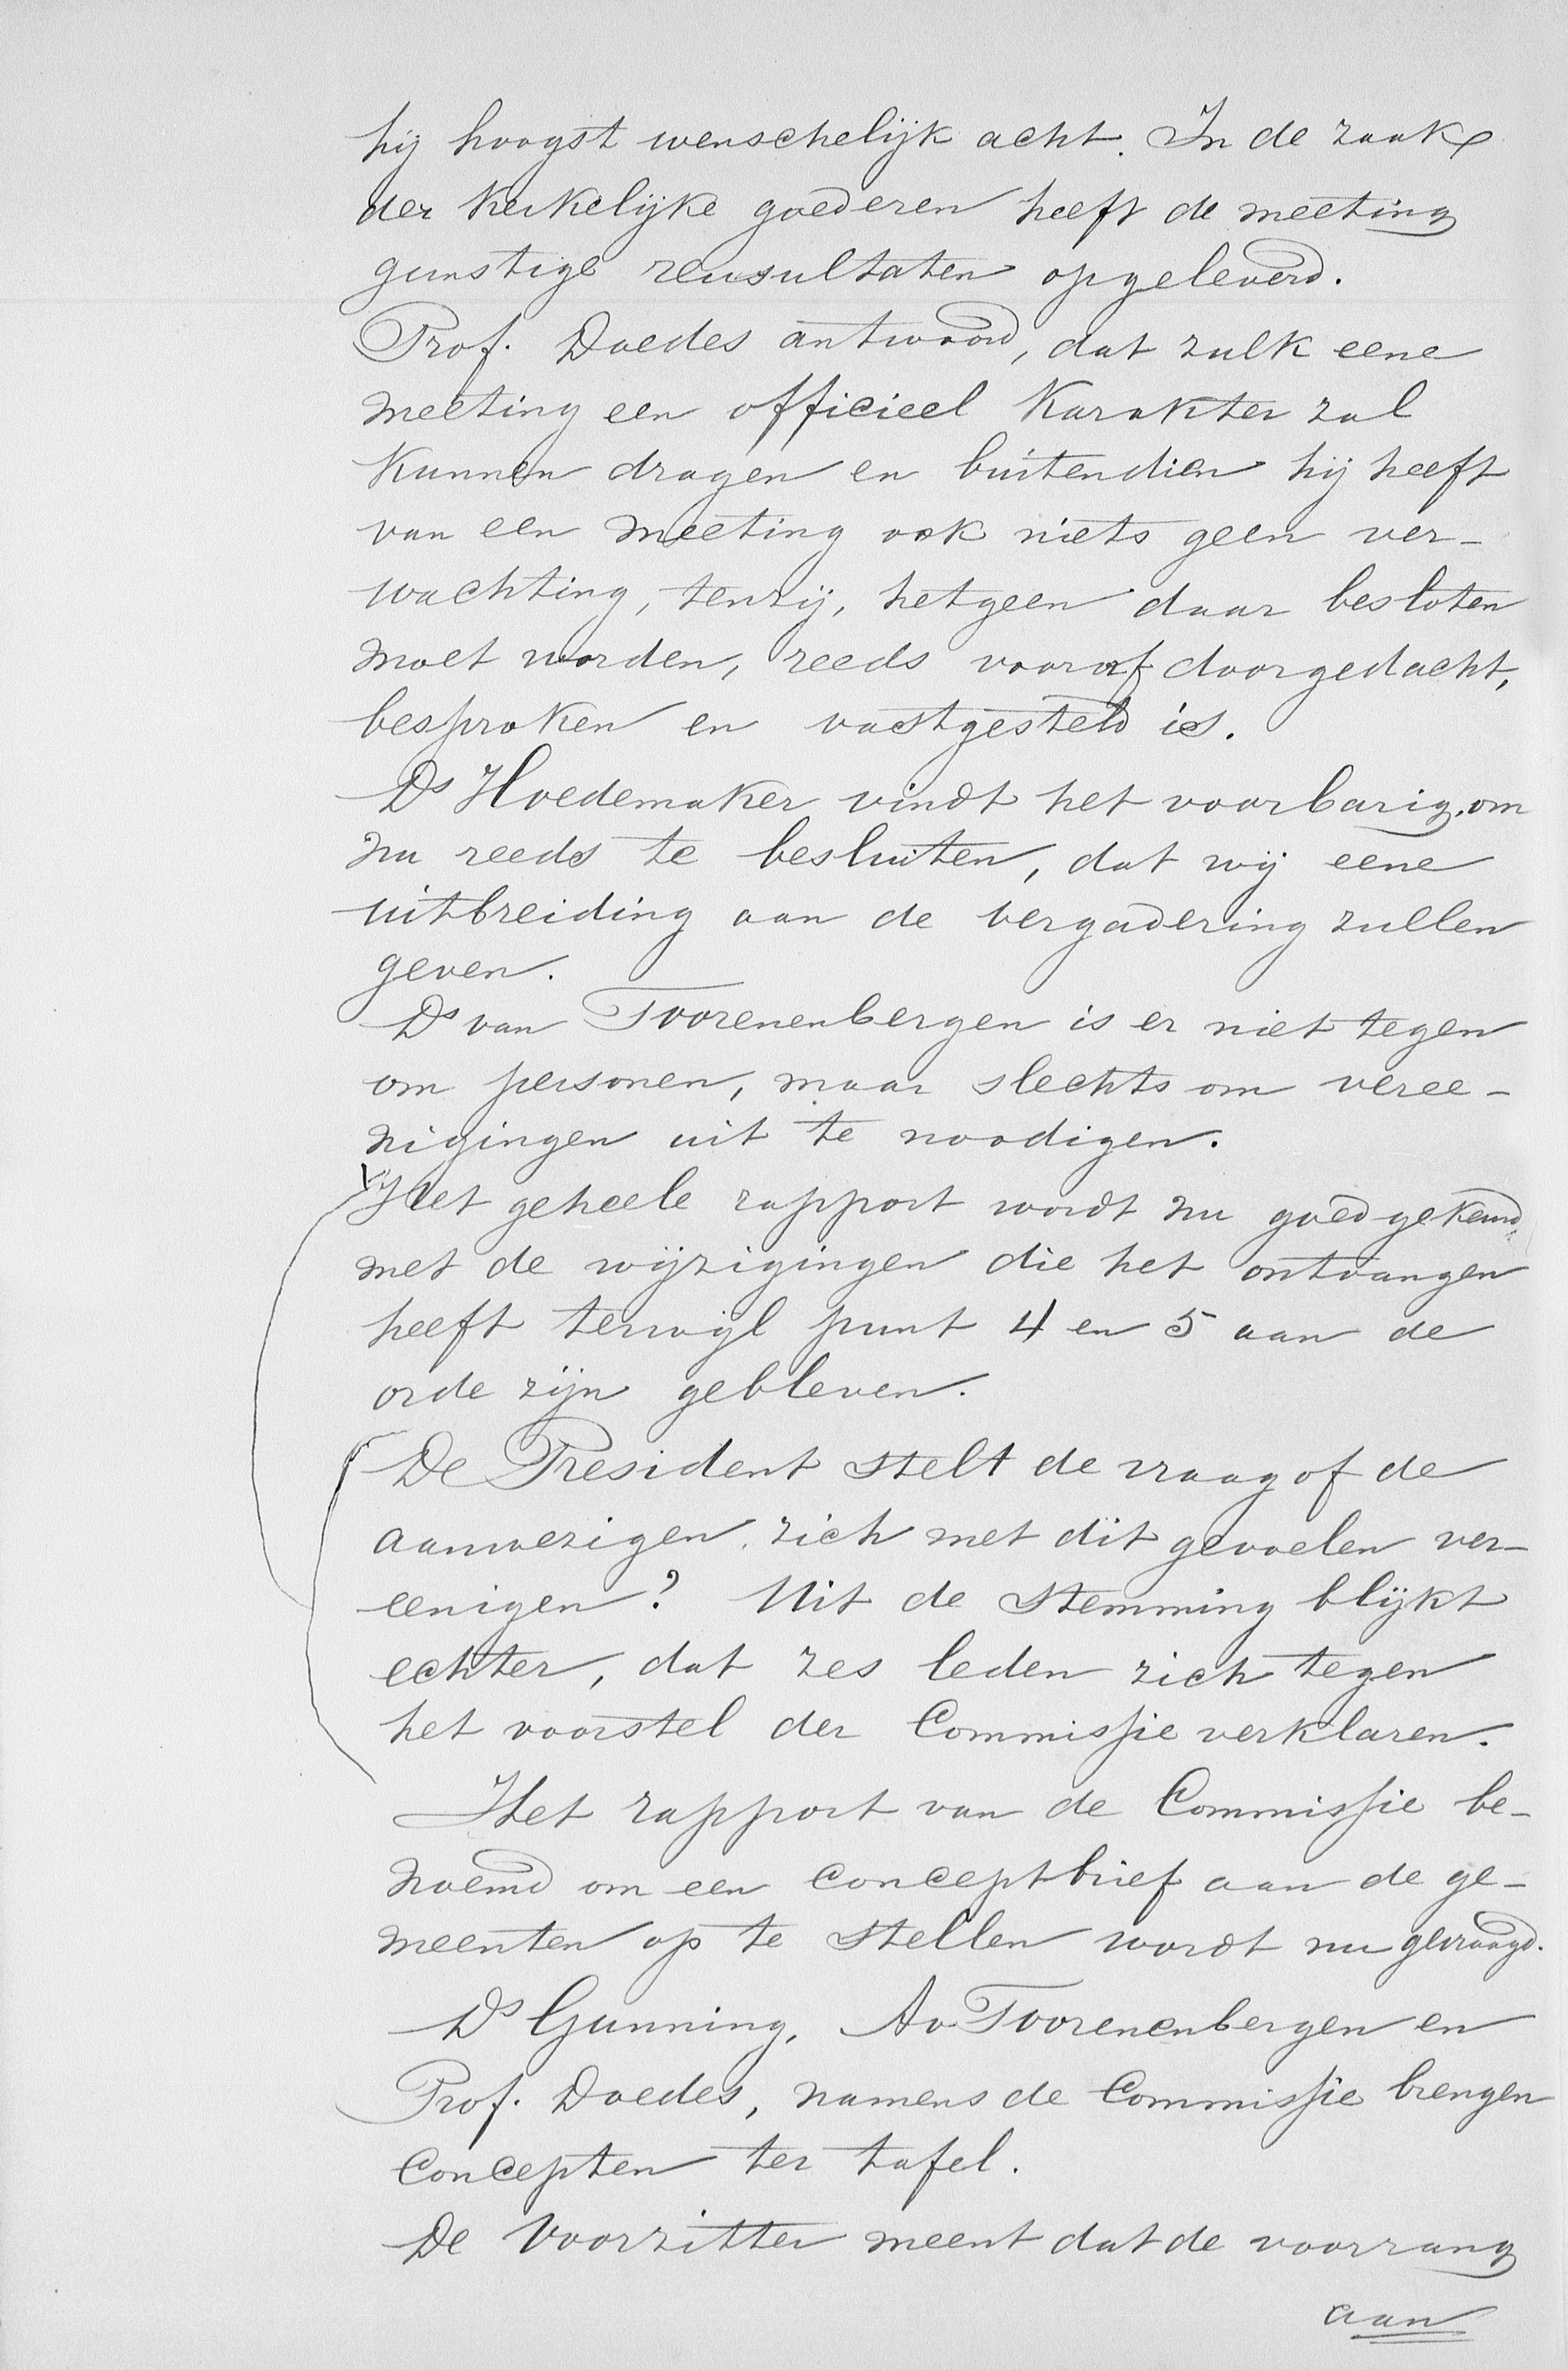 hij hoogst wenschelijk acht. In de zaak
der kerkelijke goederen heeft de meeting
gunstige reusultaten opgeleverd.
Prof. Doedes antwoord, dat zulk eene
meeting een officieel karakter zal
kunnen dragen en buitendien hij heeft
van een meeting ook niets geen ver-
wachting, tenzij, hetgeen daar besloten
moet worden, reeds vooraf doorgedacht,
besproken en vastgesteld is.
Ds Hoedemaker vindt het voorbarig, om
nu reeds te besluiten, dat wij eene
uitbreiding aan de vergadering zullen
geven.
Ds van Toorenenbergen is er niet tegen
om personen, maar slechts om veree-
nigingen uit te noodigen.
Het geheele rapport wordt nu goedgekeurd,
met de wijzigingen die het ontvangen
heeft terwijl punt 4 en 5 aan de
orde zijn gebleven.
De President stelt de vraag of de
aanwezigen zich met dit gevoelen ver-
eenigen? Uit de stemming blijkt
echter, dat zes leden zich tegen
het voorstel der Commissie verklaren.
Het rapport van de Commissie be-
noemd om een conceptbrief aan de ge-
meenten op te stellen wordt nu gevraagd.
Ds Gunning, A v Toorenenbergen en
Prof. Doedes, namens de Commissie brengen
Concepten ter tafel.
De Voorzitter meent dat de voorrang
aan